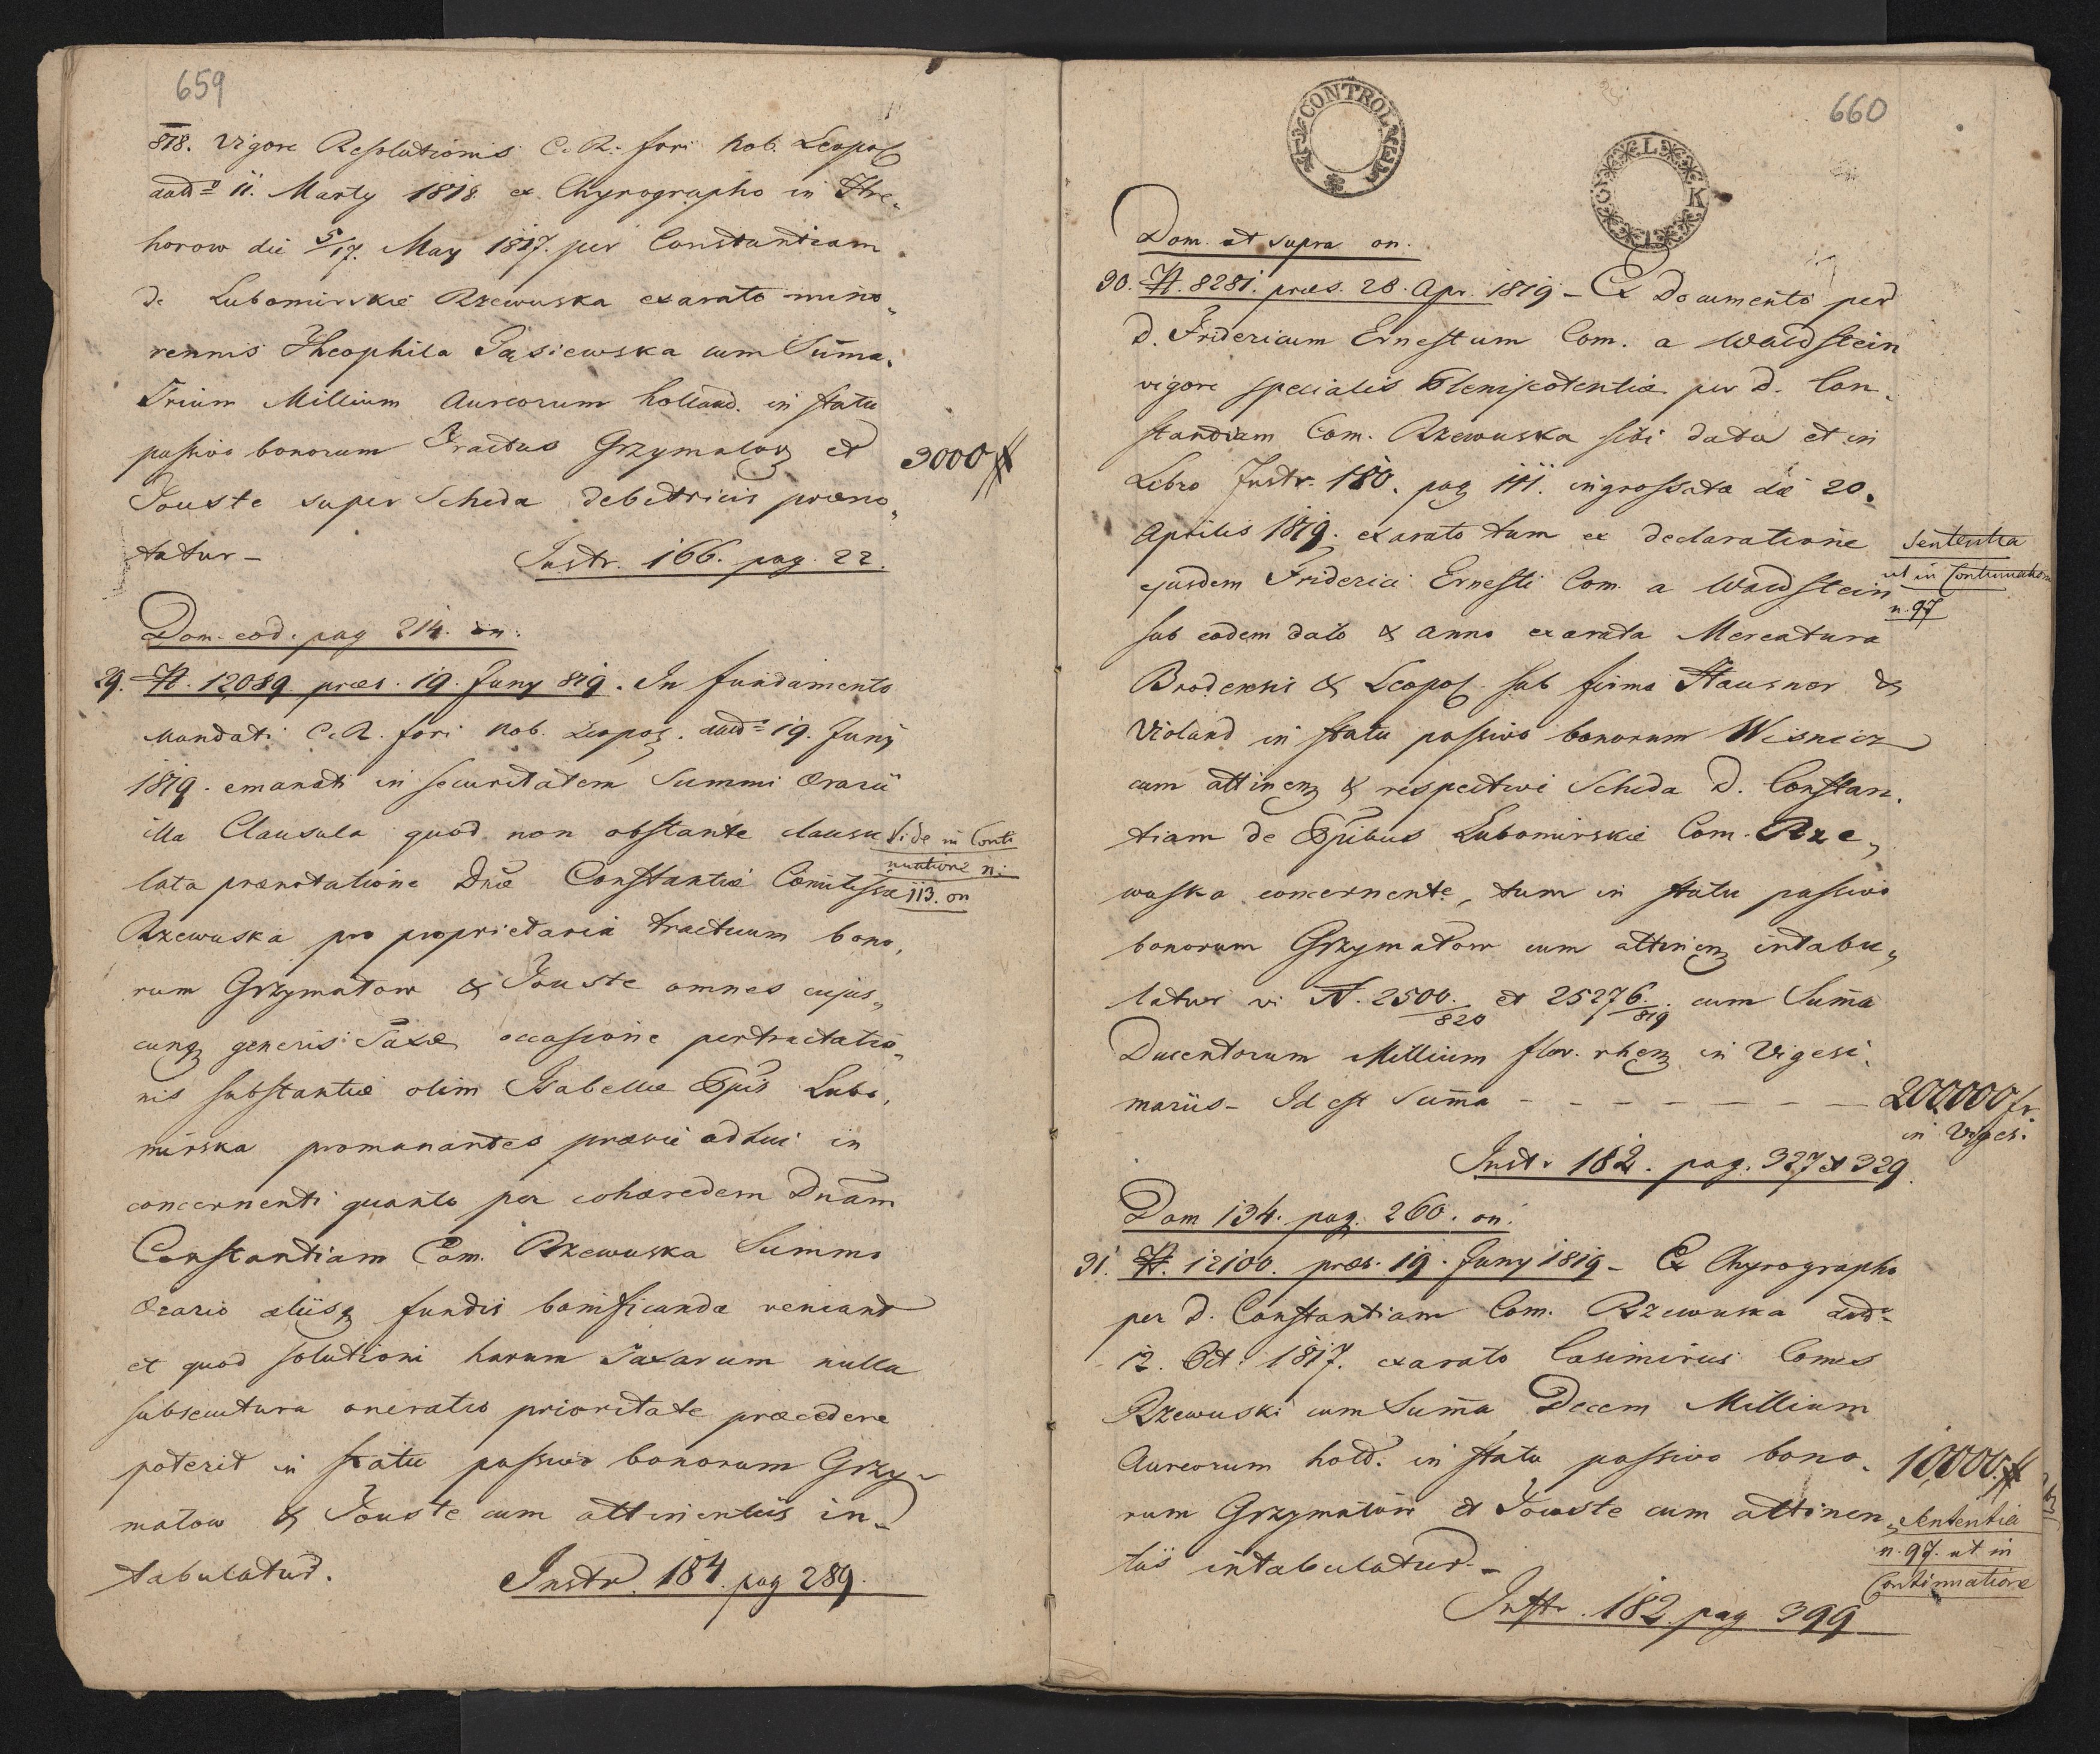 659
818. Vigore Resolutionis C. R. fori Nob. Leopol
ddto 11. Marty 1818. ex Chyrographo in Hre-
horow die 5/17. May 1817. per Constantiam
de Lubomirskie Rzewuska exarato mino-
rennis Theophila Jasiewska cum Suma.
Trium Millium Aureorum holland. in statu
passivo bonorum Tractus Grzymalow et
3000 #
Touste super Scheda debitricis præno-
tatur – Instr. 166. pag. 22.
Dom. eod. pag 214. on.
29. N. 12089 præs. 19. Juny 819. In fundamento
Mandati C. R. fori Nob. Leopol. ddto 19. Juny
1819. emanati in securitatem Summi Ærarii
illa Clausula quod non obstante clausu
Vide in Conti
nuatione n:
113. on
lata prænotatione Dnæ Constantiæ Comitissæ
Rzewuska pro proprietaria tractuum bono-
rum Grzymalow & Touste omnes cujus-
cunq generis Taxæ occasione pertractatio-
nis substantiæ olim Isabellæ Ppis Lubo-
mirska promanantes prævie adhuc in
concernenti quanto per cohæredem Dnam
Constantiam Com. Rzewuska Summo
Ærario aliisq fundis bonificanda veniant
et quod solutioni harum Taxarum nulla
subsecutura oneratio prioritate præcedere
poterit in statu passivo bonorum Grzy-
malow & Touste cum attinentiis in-
tabulatur. Instr. 184. pag 289.
660
CONTROL
L K
Dom. ut supra on.
30. N. 8281. præs. 28. Apr. 1819 – Ex Documento per
D. Fridericum Ernestum Com. a Waldstein
vigore specialis Plenipotentiæ per D. Con-
stantiam Com. Rzewuska sibi data et in
Libro Instr. 180. pag 111. ingrossata de 20.
Aprilis 1819. exarato tum ex declaratione
Sententia
ut in Continuatione
n. 97
ejusdem Friderici Ernesti Com. a Waldstein
sub eodem dato & anno exarata Mercatura
Brodensis & Leopol. sub firma Hausner &
Violand in statu passivo bonorum Wisnicz
cum attinenz & respective Scheda D. Constan-
tiam de Ppibus Lubomirskie Com. Rze-
wuska concernente, tum in statu passivo
bonorum Grzymalow cum attinenz intabu-
latur vi N. 2500./820 et 25276./819. cum Suma
Ducentorum Millium flor. rhen. in Vigesi-
mariis – Id est Suma – – – – – – –
200000 fr.
in Viges.
Instr. 182. pag. 327 et 329.
Dom 134. pag. 260. on.
31. N. 12100. præs. 19. Juny 1819 – Ex Chyrographo
per D. Constantiam Com. Rzewuska ddto
12. Oct. 1817. exarato Casimirus Comes
Rzewuski cum Suma Decem Millium
Aureorum hold. in statu passivo bono-
10,000. #
rum Grzymalow et Touste cum attinen-
Sententia
n. 97. ut in
Continuatione
tiis intabulatur. –
Instr. 182. pag 399